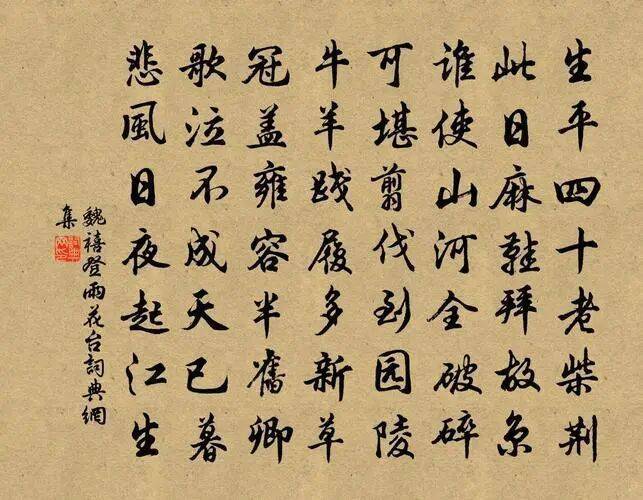 生平四十老柴荆
此日麻鞋拜故京
谁使山河全破碎
可堪翦伐到园陵
牛羊践履多新草
冠盖雍容半舊卿
歌泣不成天已暮
悲風日夜起江生
魏禧登雨花台詞典網
集